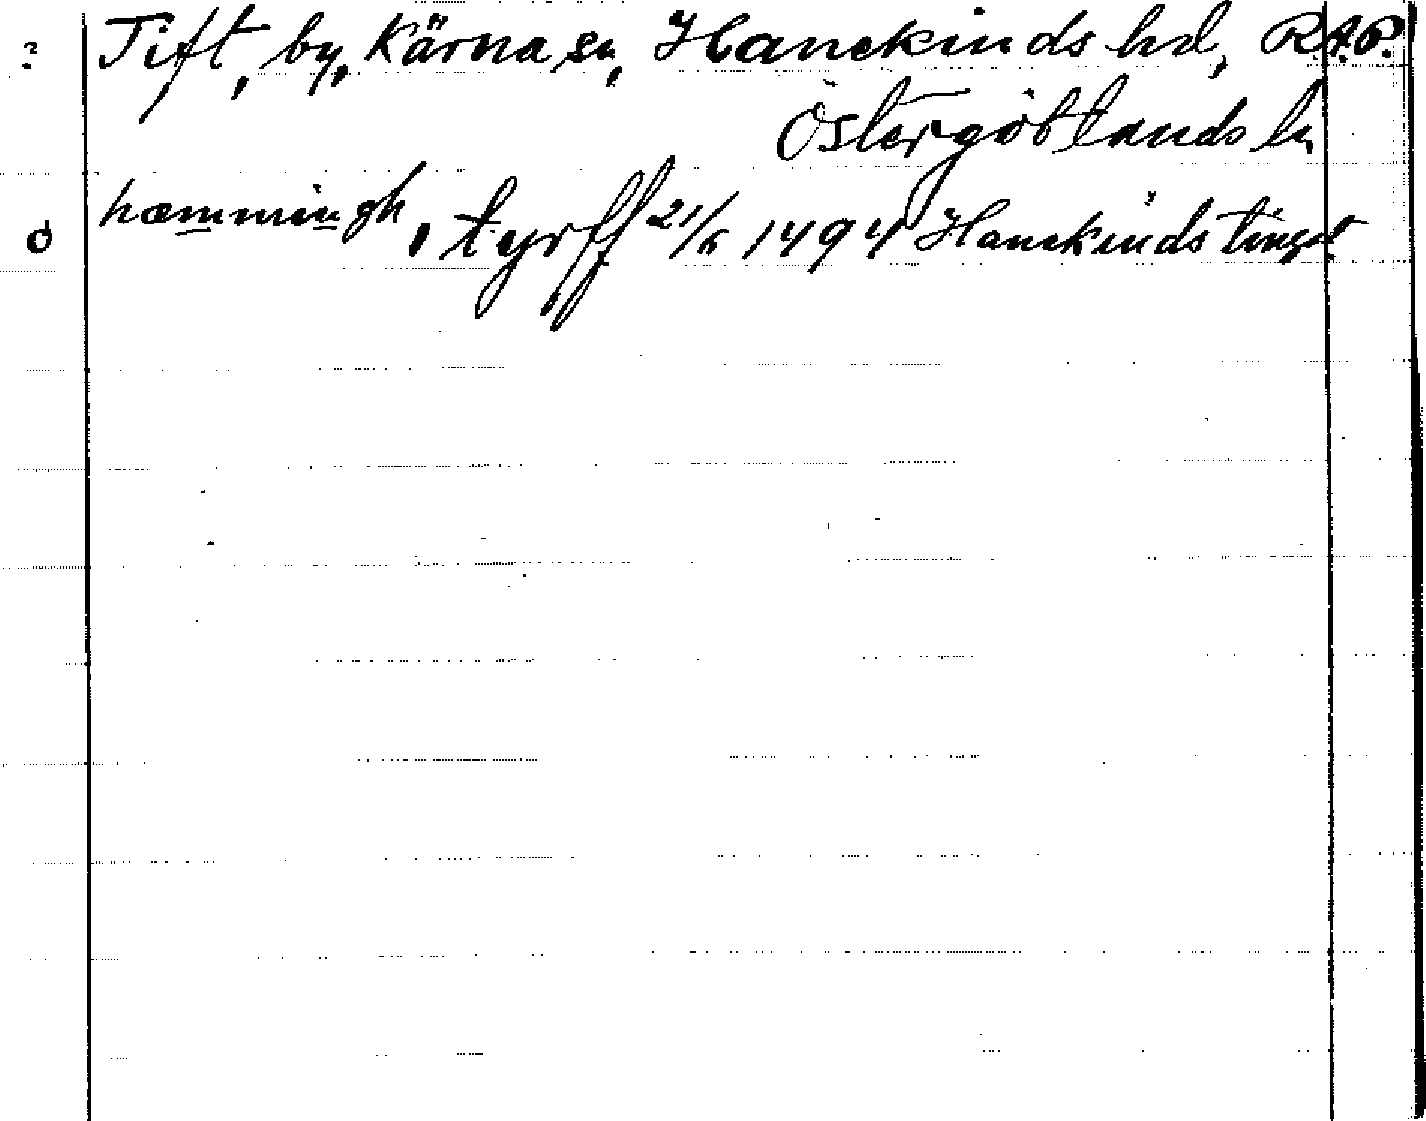 ? Tift, by, Kärna sn, Hanekinds hd, RAP.
Östergötlands ln
ó hæmmingh, i tyrff 21/6 1494 Hanekinds tingst